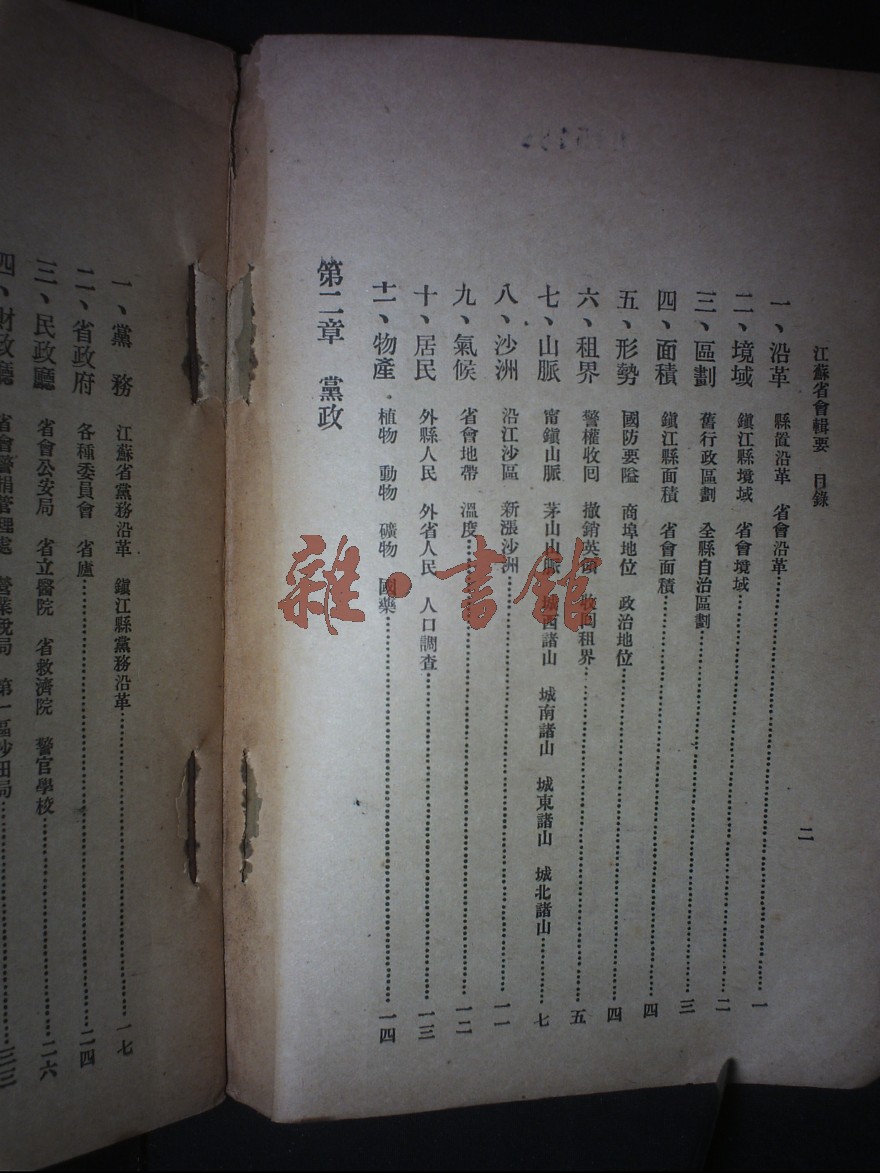 江蘇省會輯要　目錄　二
一、沿革　縣置沿革　省會沿革……一
二、境域　鎮江縣境域　省會境域……二
三、區劃　舊行政區劃　全縣自治區劃……三
四、面積　鎮江縣面積　省會面積……四
五、形勢　國防要隘　商埠地位　政治地位……四
六、租界　警權收回　撤銷英領　收回租界……五
七、山脈　甯鎮山脈　茅山山脈　城西諸山　城南諸山　城東諸山　城北諸山……七
八、沙洲　沿江沙區　新漲沙洲……一一
九、氣候　省會地帶　溫度……一二
十、居民　外縣人民　外省人民　人口調查……一三
十一、物產　植物　動物　礦物　國藥……一四
第二章　黨政
一、黨務　江蘇省黨務沿革　鎮江縣黨務沿革……一七
二、省政府　各種委員會　省廬……二四
三、民政廳　省會公安局　省立醫院　省救濟院　警官學校……二六
四、財政廳　省會警捐管理處　營業稅局　第一區沙田局……三三
雜·書館